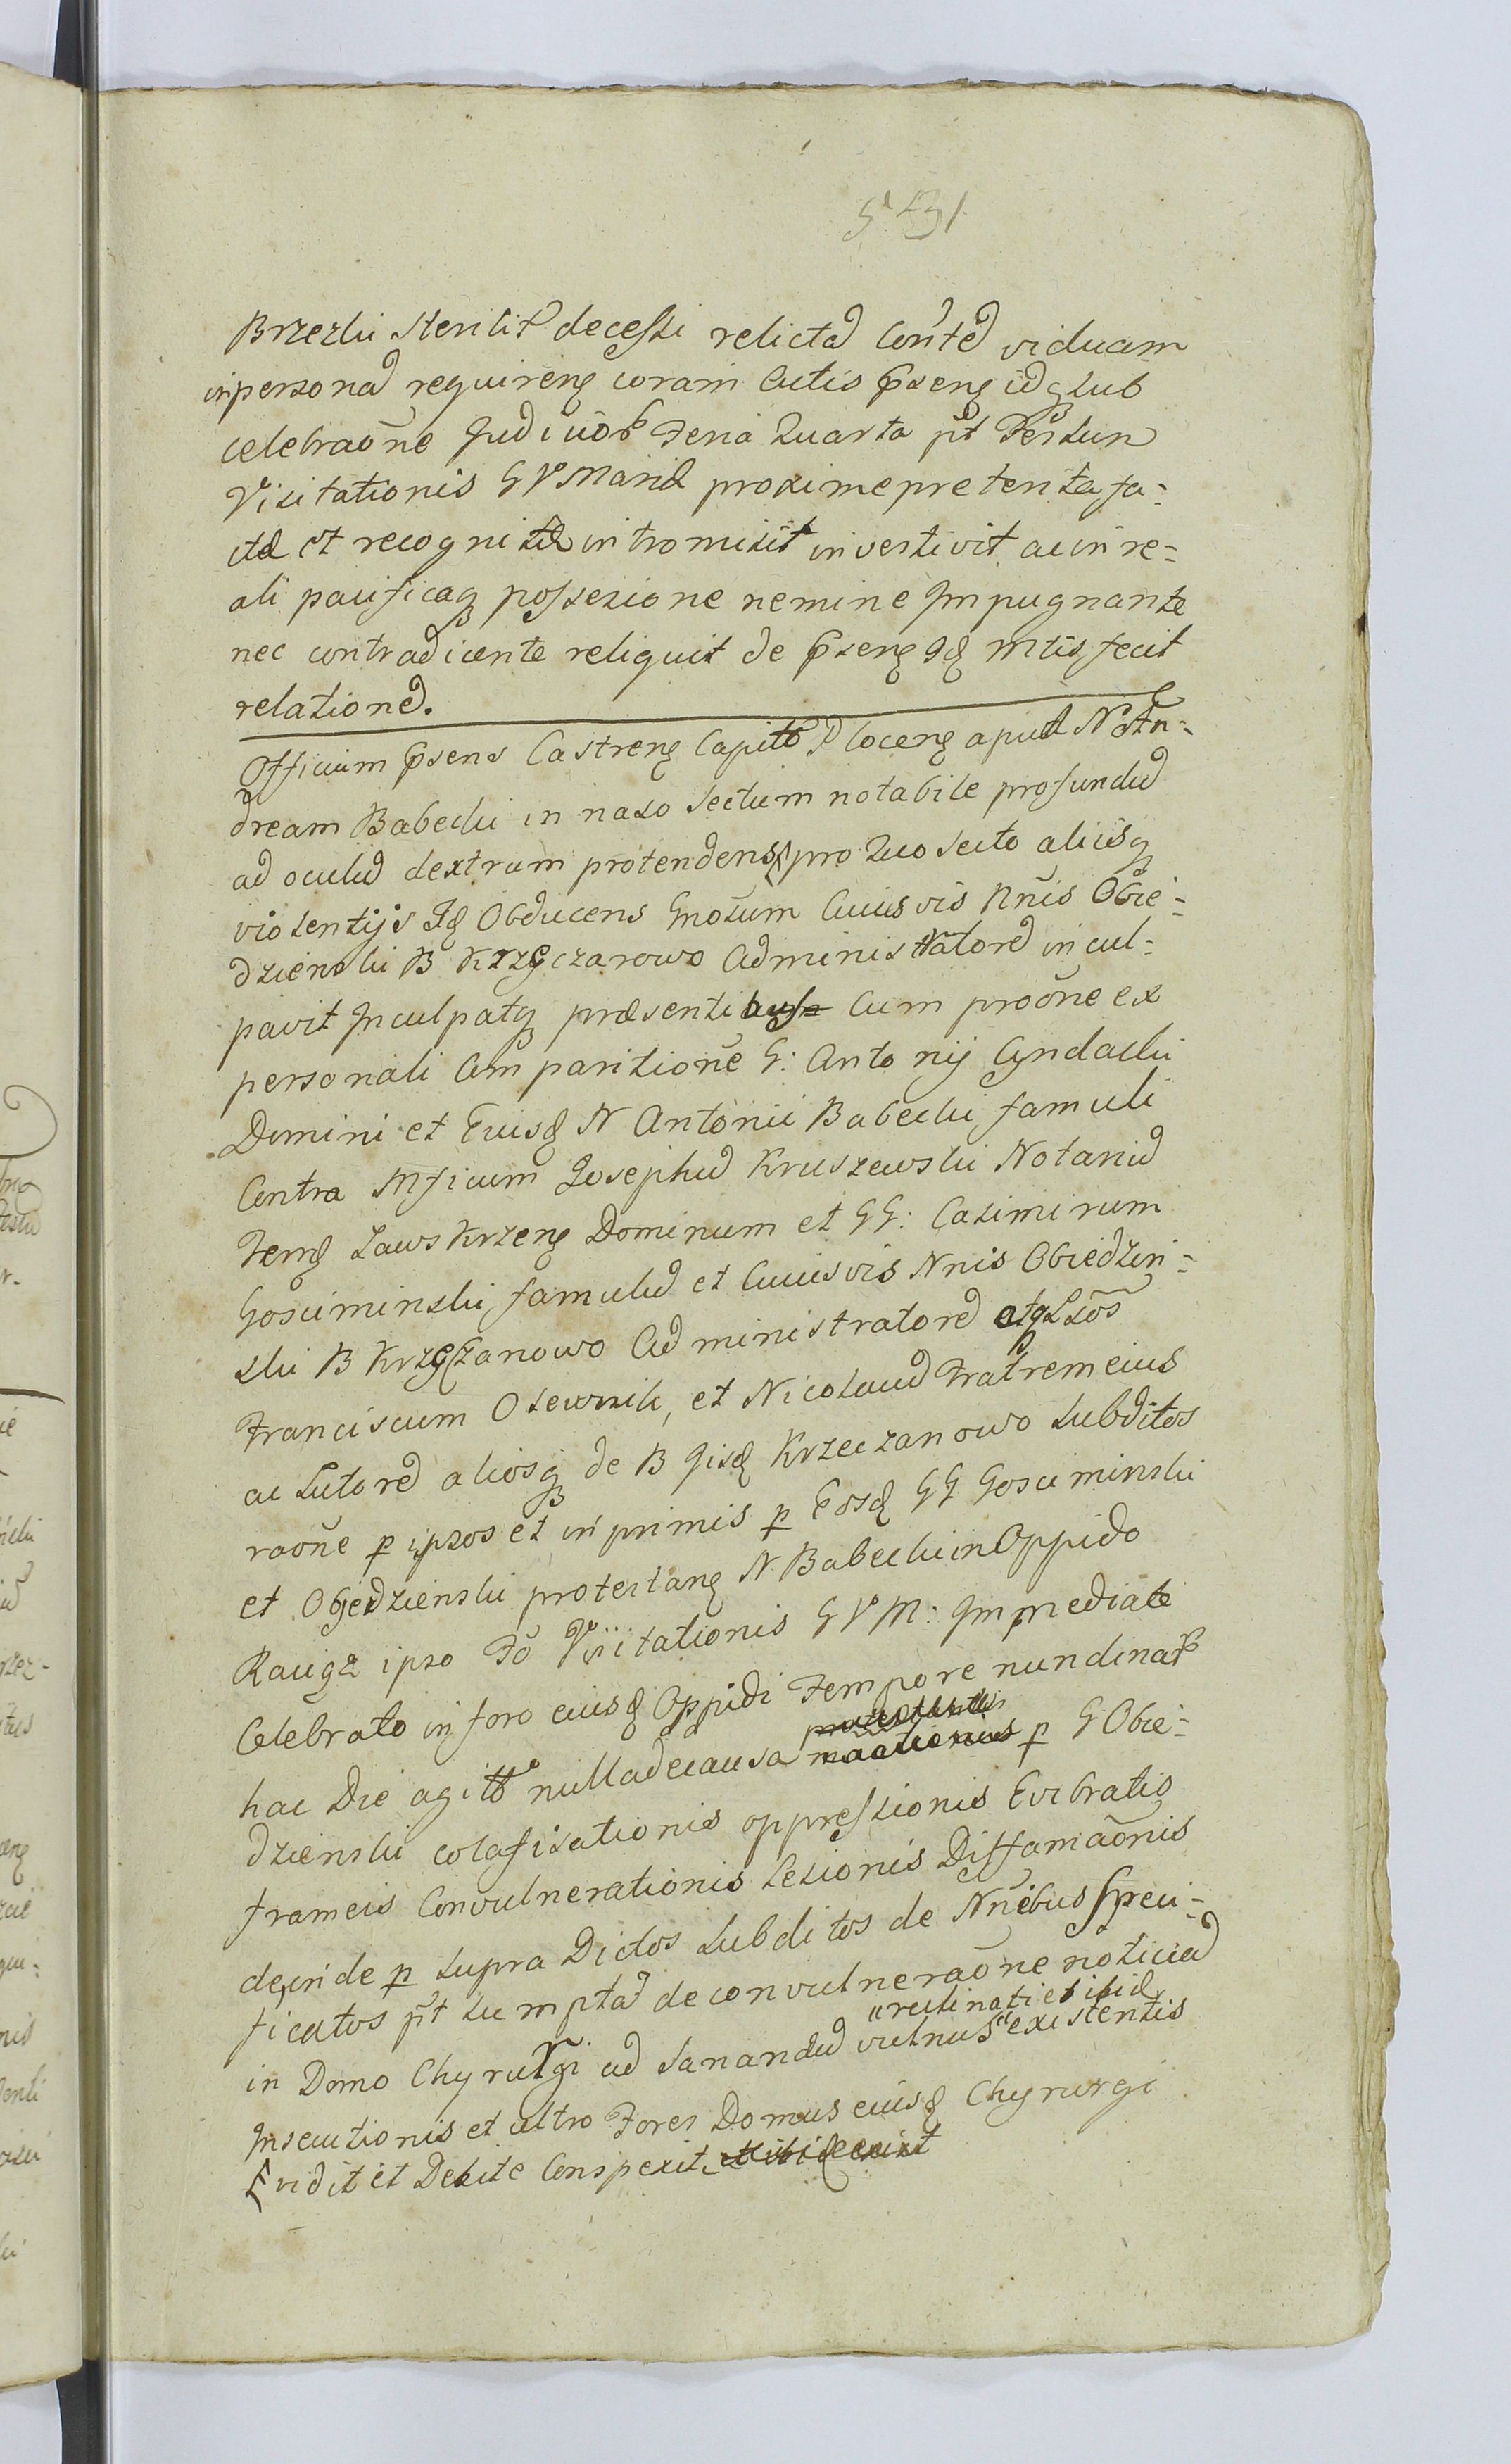 Brzezki sterilit decessi relicta Conte viduam
in persona requireng coram Actis Pseng idq sub
celebraone Judicior Feria Quarta pt Festum
Visitationis G V Mariæ proxime preterita fa-
ctæ et recognitæ intromisit investivit ac in re-
ali pacificaq possesione nemine Impugnante
nec contradicente reliquit de Pseng qd Mtis fecit
relatione.
Officium Psens Castreng Capitt Ploceng apud N An-
dream Babecki in naso sectum notabile profundu
ad oculu dextrum protendens pro Quo secto aliisq
violentijs Id Obducens Gnosum Cuiusvis Nnis Obie-
dzienski B Krzęczanowo Administratore incul-
pavit Inculpatq præsentibus Cum proone ex
personali Comparitione G: Antonij Cyndacki
Domini et Eiusd N Antonii Babecki famuli
Contra Mficum Josephu Kruszewski Notariu
Terrg Zawskrzeng Dominum et GG: Casimirum
Gosciminski famulu et Cuiusvis Nnis Obiedzin-
ski B Krzęczanowo Administratore atq Lsos
Franciscum Osewnik, et Nicolaum Fratrem eius
ac Sutore aliosq de B Gisd Krzeczanowo Subditos
raone p ipsos et in primis p Eosd GG Gosciminski
et Objedzienski protestang N Babecki in Oppido
Raciąz ipso Fo Visitationis G V M: Immediate
Celebrato in foro eiusd Oppidi Tempore nundinar
hac Die agitt nulla de causa p G Obie-
dzienski colafisationis oppressionis Evibratis
frameis Convulnerationis Lesionis Diffamaonis
deinde p supra Dictos Subditos de Nnibus speci-
ficatos pt sumpta de convulneraone noticia
in Domo Chyrurgi ad sanandu vulnus "reclinati et ibid" existentis
Insecutionis et ultro Fores Domus eiusd Chyrurgi
vidit et Debite Conspexit